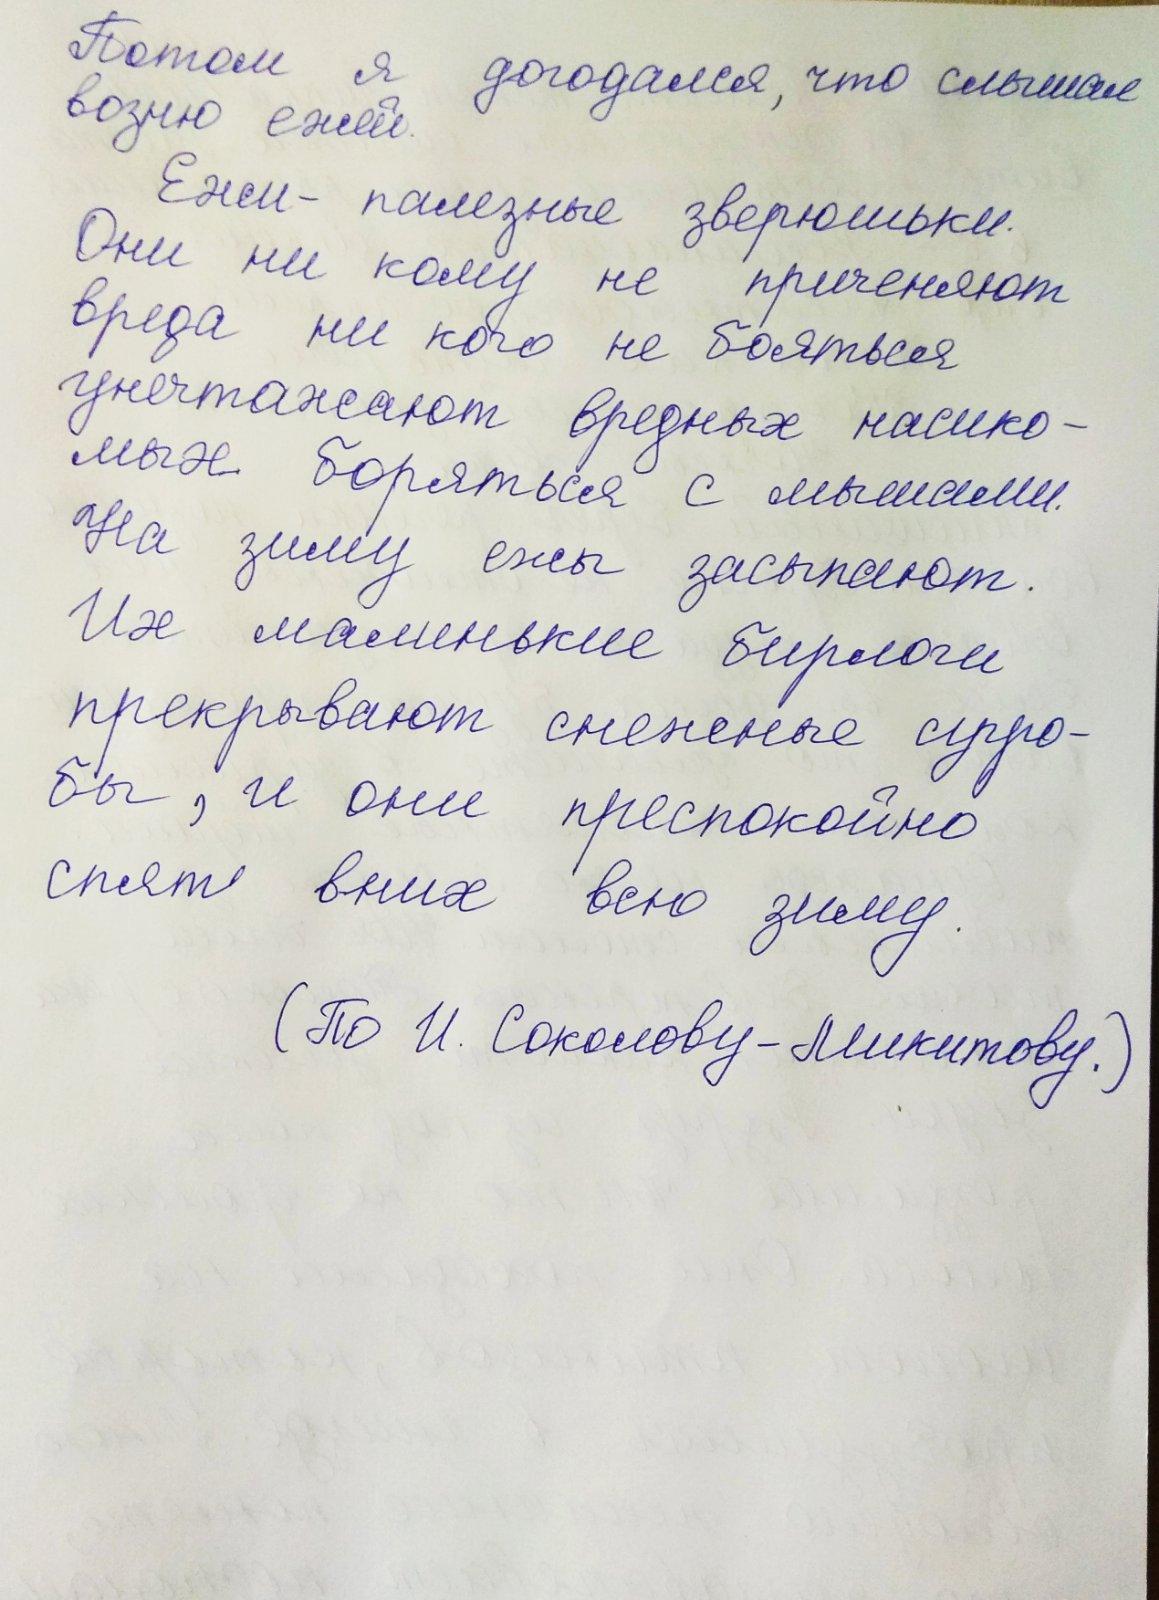 Потом я догодался, что слышал
возню ежей.
Ежи - палезные зверюшьки.
Они ни кому не приченяют
вреда ни кого не бояться
унечтажают вредных насико-
мых боряться с мышами.
На зиму ежы засыпают.
Их малинькие бирлоги
прекрывают снежные сугро-
бы, и они преспокойно
спят вних всю зиму.
(По И. Соколову-Микитову.)